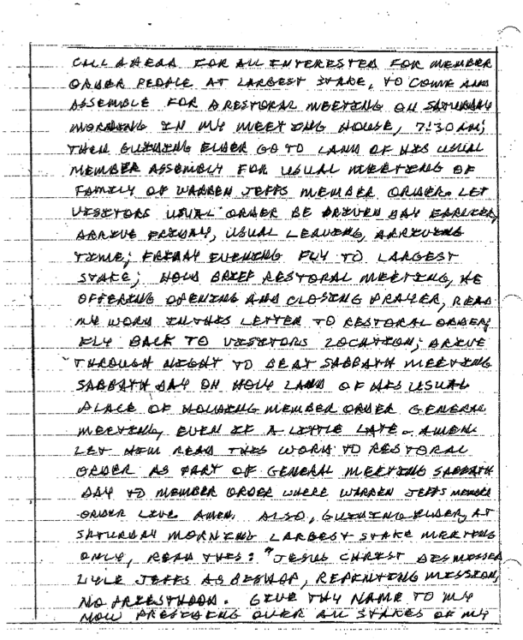 CALL AHEAD FOR ALL INTERESTED FOR MEMBER
ORDER PEOPLE AT LARGEST STAKE, TO COME AND
ASSEMBLE FOR A RESTORAL MEETING ON SATURDAY
MORNING IN MY MEETING HOUSE, 7:30 AM;
THEN GUIDING ELDER GO TO LAND OF HIS USUAL
MEMBER ASSEMBLY FOR USUAL MEETING OF
FAMILY OF WARREN JEFFS MEMBER ORDER. LET
VISITORS USUAL ORDER BE DRIVEN DAY EARLIER,
ARRIVE FRIDAY, USUAL LEAVING, ARRIVING
TIME; FRIDAY EVENING FLY TO LARGEST
STAKE; HOLD BRIEF RESTORAL MEETING, HE
OFFERING OPENING AND CLOSING PRAYER, READ
MY WORD IN THIS LETTER TO RESTORAL ORDER;
FLY BACK TO VISITORS LOCATION; DRIVE
THROUGH NIGHT TO BE AT SABBATH MEETING
SABBATH DAY ON HOLY LAND OF HIS USUAL
PLACE OF HOLDING MEMBER ORDER GENERAL
MEETING, EVEN IF A LITTLE LATE. AMEN.
LET HIM READ THIS WORD TO RESTORAL
ORDER AS PART OF GENERAL MEETING SABBATH
DAY TO MEMBER ORDER WHERE WARREN JEFFS MEMBER
ORDER LIVE AMEN. ALSO, GUIDING ELDER, AT
SATURDAY MORNING LARGEST STAKE MEETING
ONLY, READ THIS: "JESUS CHRIST DISMISSED
LYLE JEFFS AS BISHOP, REPENTING MISSION,
NO PRIESTHOOD. GIVE THY NAME TO MY
NOW PRESIDING OVER ALL STAKES OF MY